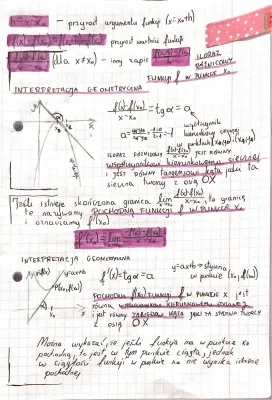 h = x - x₀ - przyrost argumentu funkcji (x = x₀ + h)
f(x) - f(x₀) = f(x₀+h) - f(x₀) przyrost wartości funkcji
f(x) - f(x₀) / x - x₀ (dla x ≠ x₀) - inny zapis f(x₀+h) - f(x₀) / h ILORAZ RÓŻNICOWY
FUNKCJI f W PUNKCIE x₀
INTERPRETACJA GEOMETRYCZNA
f(x) - f(x₀) / x - x₀ = tg α = a
współczynnik
kierunkowy siecznej
ILORAZ RÓŻNICOWY f(x) - f(x₀) / x - x₀ JEST RÓWNY
WSPÓŁCZYNNIKOWI KIERUNKOWEMU SIECZNEJ
i JEST RÓWNY TANGENSOWI KĄTA JAKI TA
sieczna tworzy z osią OX
Jeśli istnieje skończona granica lim f(x) - f(x₀) / x - x₀, to granicę
tę nazywamy POCHODNĄ FUNKCJI f W PUNKCIE x₀
i oznaczamy f'(x₀)
f'(x) = lim f(x) - f(x₀) / x - x₀
INTERPRETACJA GEOMETRYCZNA
y = ax+b
f'(x) = tg α = a
y = ax+b → styczna
w punkcie (x₀, f(x₀))
POCHODNA f'(x₀) FUNKCJI f W PUNKCIE x jest
równa WSPÓŁCZYNNIKOWI KIERUNKOWEMU STYCZNEJ
i jest równy TANGENSOWI KĄTA JAKI TA STYCZNA TWORZY
Z OSIĄ OX
Można wykazać, że jeśli funkcja ma w punkcie x₀
pochodną, to jest w tym punkcie ciągła, jednak
w ciągłości funkcji w punkcie x₀ nie wynika istnienie
pochodnej